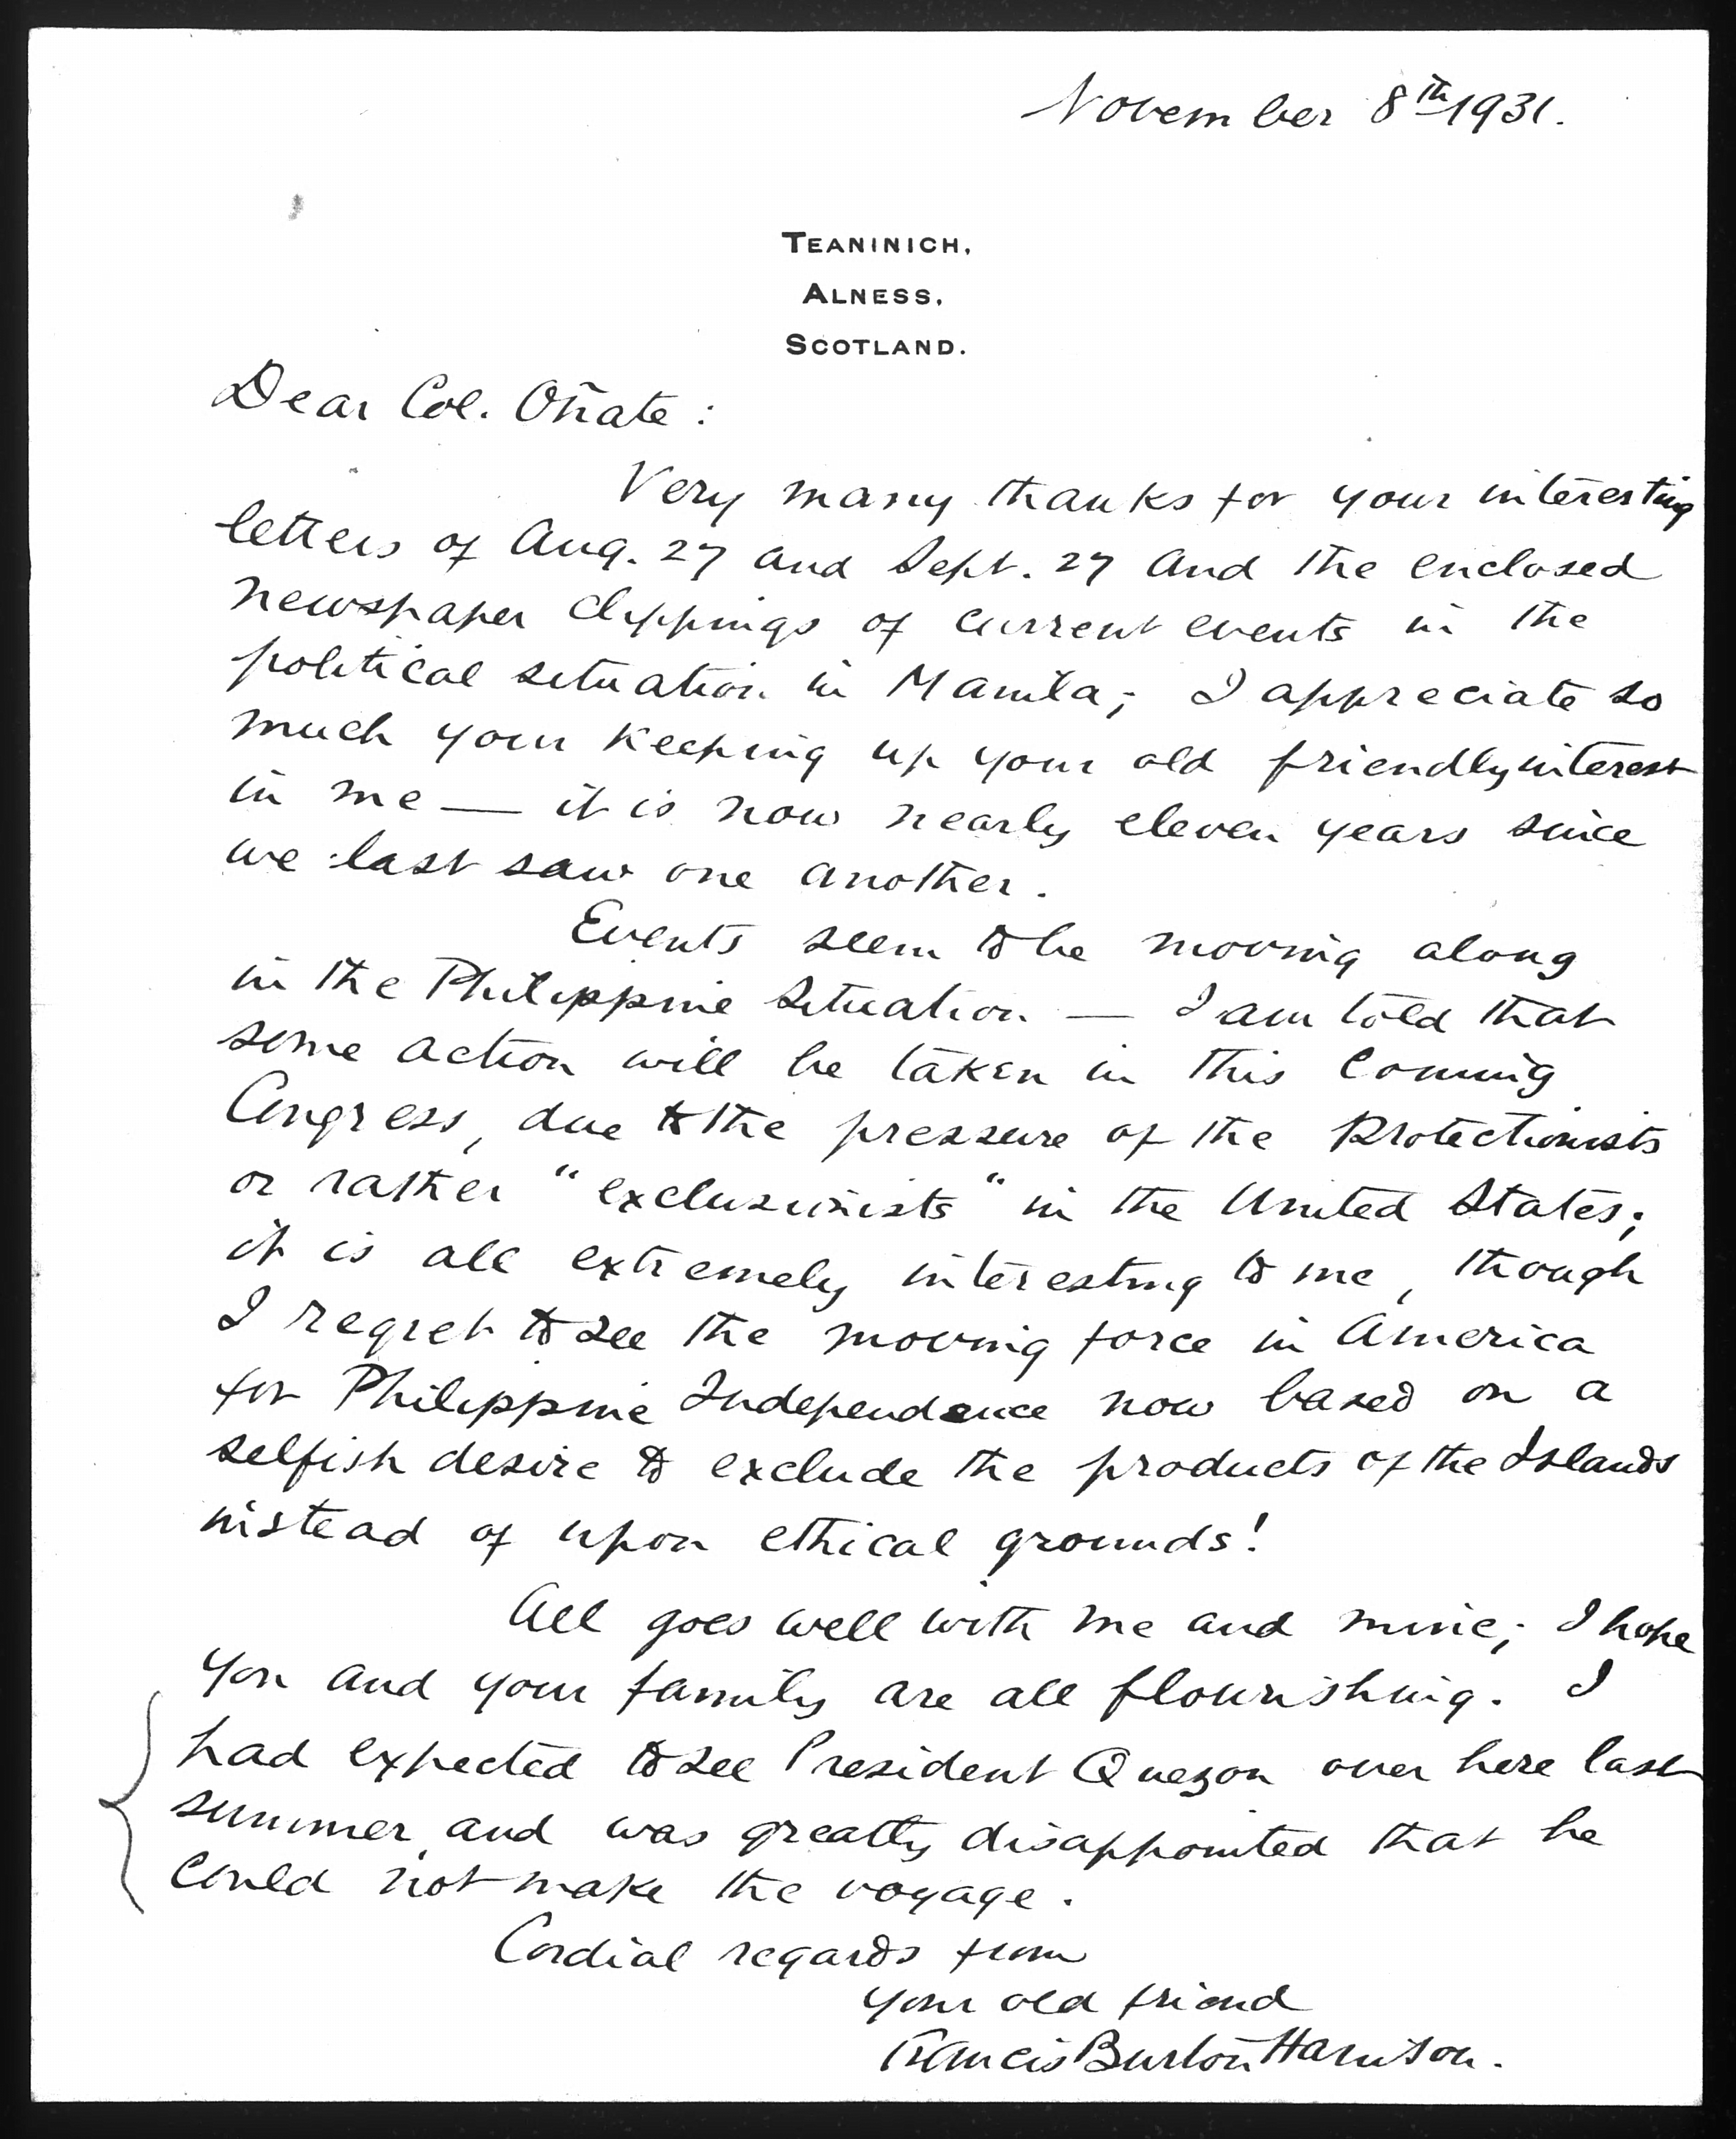 November 8th 1931.
TEANINICH,
ALNESS,
SCOTLAND.
Dear Col. Oñate:
Very many thanks for your interesting
letters of Aug. 27 and Sept. 27 and the enclosed
newspaper clippings of current events in the
political situation in Manila; I appreciate so
much your keeping up your old friendly interest
in me — it is now nearly eleven years since
we last saw one another.
Events seem to be moving along
in the Philippine Situation — I am told that
some action will be taken in this coming
Congress, due to the pressure of the Protectionists
or rather "exclusionists" in the United States;
it is all extremely interesting to me, though
I regret to see the moving force in America
for Philippine Independence now based on a
selfish desire to exclude the products of the Islands
instead of upon ethical grounds!
All goes well with me and mine; I hope
you and your family are all flourishing. I
had expected to see President Quezon over here last
summer, and was greatly disappointed that he
could not make the voyage.
Cordial regards from
your old friend
Francis Burton Harrison.